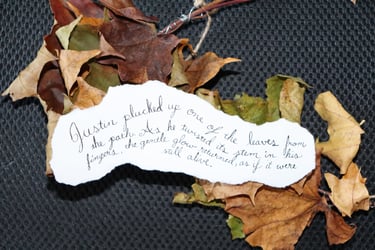 Justin plucked up one of the leaves from
the path. As he twisted its stem in his
fingers, the gentle glow returned, as if it were
still alive.